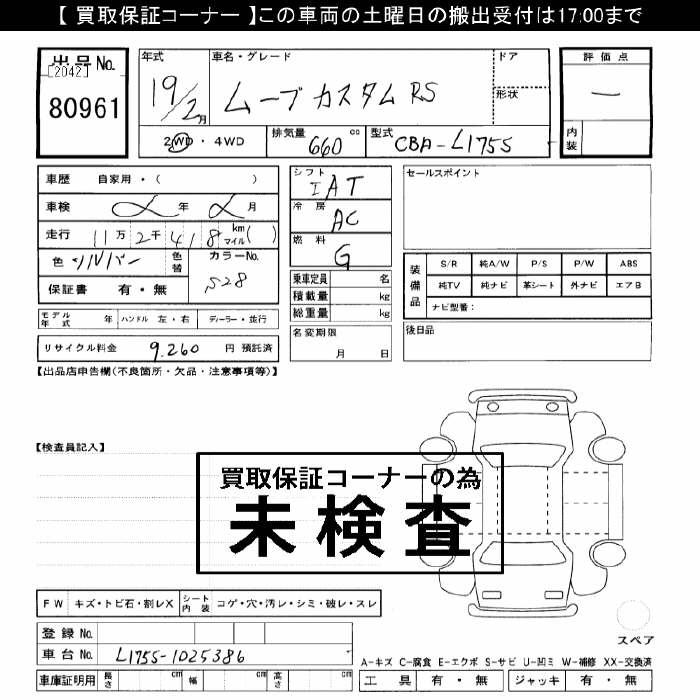 【 買取保証コーナー 】この車両の土曜日の搬出受付は17:00まで
出品No.
[2042]
80961
年式
19/2月
車名・グレード
ムーブカスタム RS
ドア
形状
評価点
一
内装
2WD・4WD
排気量 660 cc
型式 CBA-L175S
車歴 自家用・( )
車検 年 月
走行 11万 2千 4 1 8 km マイル( )
色 シルバー 色替 カラーNo. S28
保証書 有・無
シフト IAT
冷房 AC
燃料 G
乗車定員 名
積載量 kg
総重量 kg
名変期限
月 日
セールスポイント
装備品
S/R 純A/W P/S P/W ABS
純TV 純ナビ 革シート 外ナビ エアB
ナビ型番:
後日品
モデル年式 年 ハンドル 左・右 ディーラー・並行
リサイクル料金 9,260 円 預託済
【出品店申告欄(不良箇所・欠品・注意事項等)】
【検査員記入】
買取保証コーナーの為
未検査
FW キズ・トビ石・割レX シート内装 コゲ・穴・汚レ・シミ・破レ・スレ
登録No.
車台No. L175S-1025386
車庫証明用 長さ cm 幅 cm 高さ cm
スペア
A-キズ C-腐食 E-エクボ S-サビ U-凹ミ W-補修 XX-交換済
工具 有・無 ジャッキ 有・無